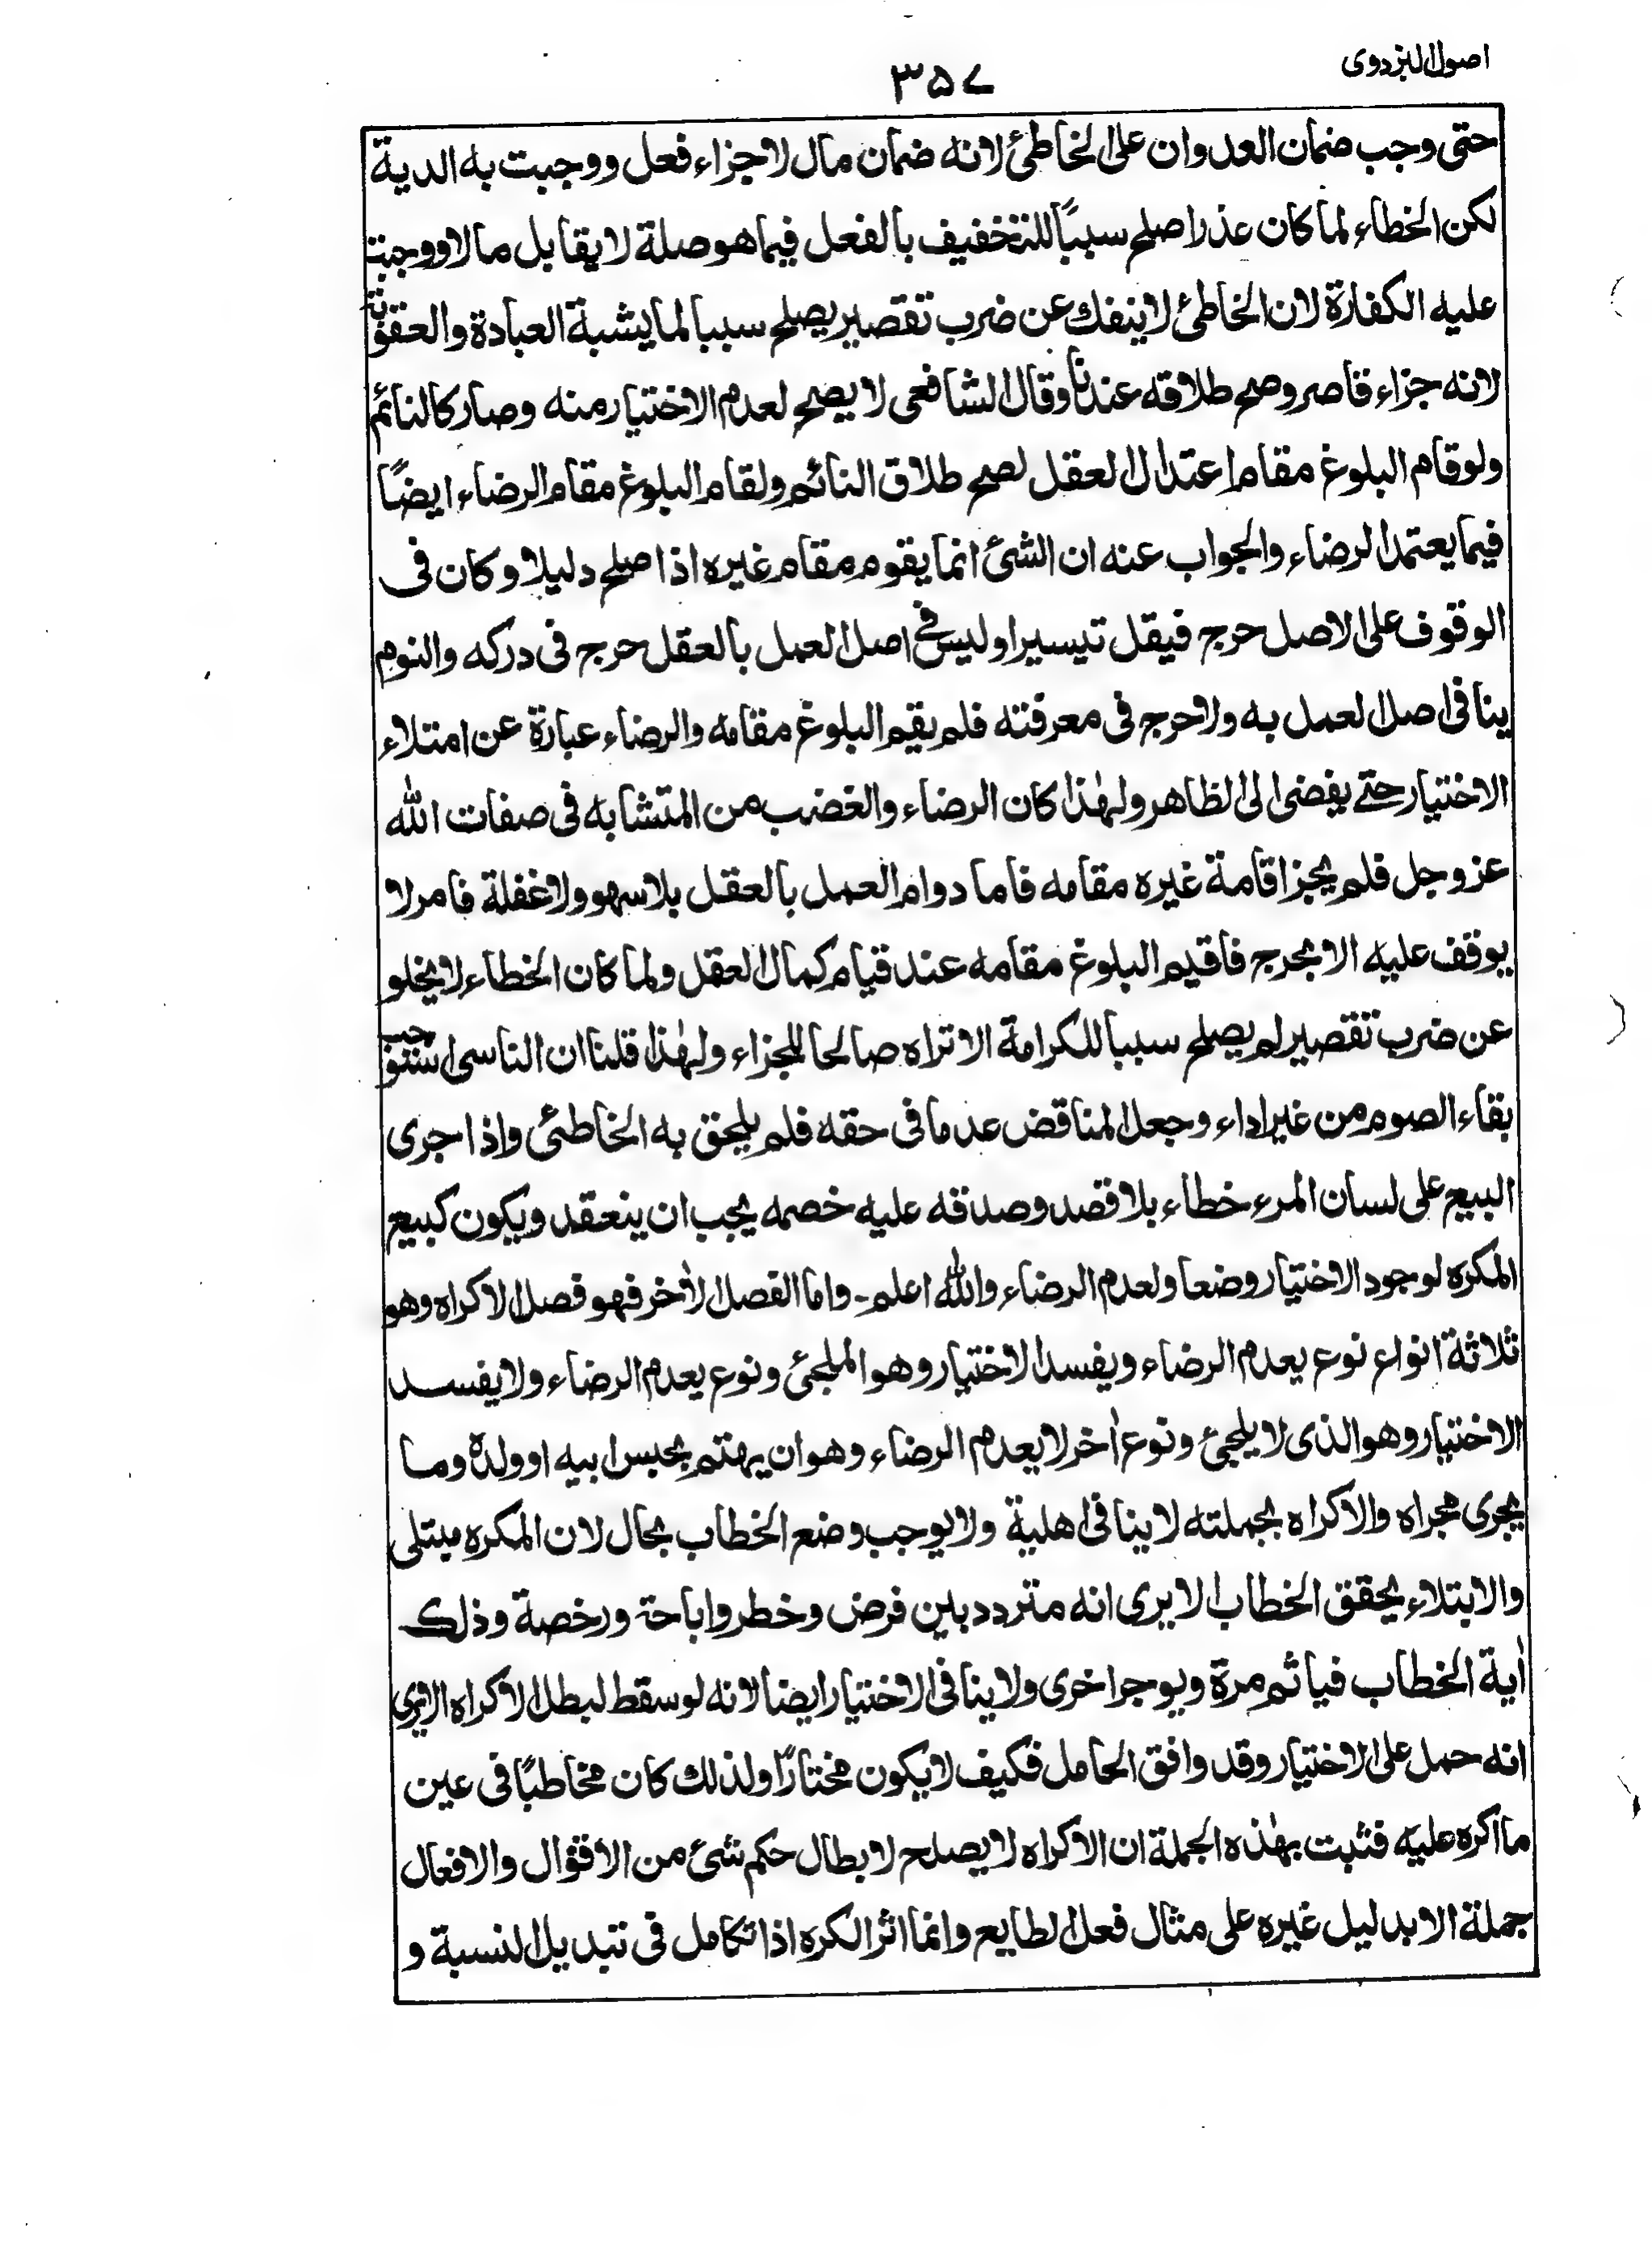 اصول البزدوی
۳۵۷
حتى وجب ضمان العدوان على الخاطئ لانه ضمان مال لا جزاء فعل ووجبت به الدية
لكن الخطاء لما كان عذرا صلح سبباً للتخفيف بالفعل فيما هو صلة لا يقابل مالا ووجبت
عليه الكفارة لان الخاطئ لا ينفك عن ضرب تقصير يصلح سببا لما يشبة العبادة والعقوبة
لانه جزاء قاصر وصح طلاقه عندنا وقال الشافعى لا يصح لعدم الاختيار منه وصار كالنائم
ولو قام البلوغ مقام اعتدال العقل لصح طلاق النائم ولقام البلوغ مقام الرضاء ايضاً
فيما يعتمد الرضاء والجواب عنه ان الشئ انما يقوم مقام غيره اذا صلح دليلا وكان فى
الوقوف على الاصل حرج فيقل تيسيرا وليس فى اصل العمل بالعقل حرج فى دركه والنوم
ينافى اصل العمل به ولا حرج فى معرفته فلم يقم البلوغ مقامه والرضاء عبارة عن امتلاء
الاختيار حتے يفضى الى الظاهر ولهٰذا كان الرضاء والغضب من المتشابه فى صفات الله
عز وجل فلم يجز اقامة غيره مقامه فاما دوام العمل بالعقل بلا سهو ولا غفلة فامر لا
يوقف عليه الا بحرج فاقيم البلوغ مقامه عند قيام كمال العقل ولما كان الخطاء لا يخلو
عن ضرب تقصير لم يصلح سببا للكرامة الا تراه صالحا للجزاء ولهٰذا قلنا ان الناسى استوجب
بقاء الصوم من غير اداء وجعل المناقض عدما فى حقه فلم يلحق به الخاطئى واذا جرى
البيع على لسان المرء خطاء بلا قصد وصدقه عليه خصمه يجب ان ينعقد ويكون كبيع
المكره لوجود الاختيار وضعا ولعدم الرضاء والله اعلم۔ واما الفصل الاٰخر فهو فصل الاكراه وهو
ثلاثة انواع نوع يعدم الرضاء ويفسد الاختيار وهو الملجئ ونوع يعدم الرضاء ولا يفسد
الاختيار وهو الذى لا يلجئ ونوع اٰخر لا يعدم الرضاء وهو ان يهتم بحبس ابيه او ولده وما
يجرى مجراه والاكراه بجملته لا ينافى اهلية ولا يوجب وضع الخطاب بحال لان المكره مبتلى
والابتلاء يحقق الخطاب الا يرى انه متردد بين فرض وخطر واباحة ورخصة وذلك
اٰية الخطاب فياثم مرة ويوجر اخرى ولا ينافى الاختيار ايضا لانه لو سقط لبطل الاكراه الا يرى
انه حمل على الاختيار وقد وافق الحامل فكيف لا يكون مختاراً ولذلك كان مخاطباً فى عين
ما اكره عليه فثبت بهٰذه الجملة ان الاكراه لا يصلح لابطال حكم شئ من الاقوال والافعال
جملة الا بدليل غيره على مثال فعل الطايع وانما اثر الكره اذا تكامل فى تبديل النسبة و